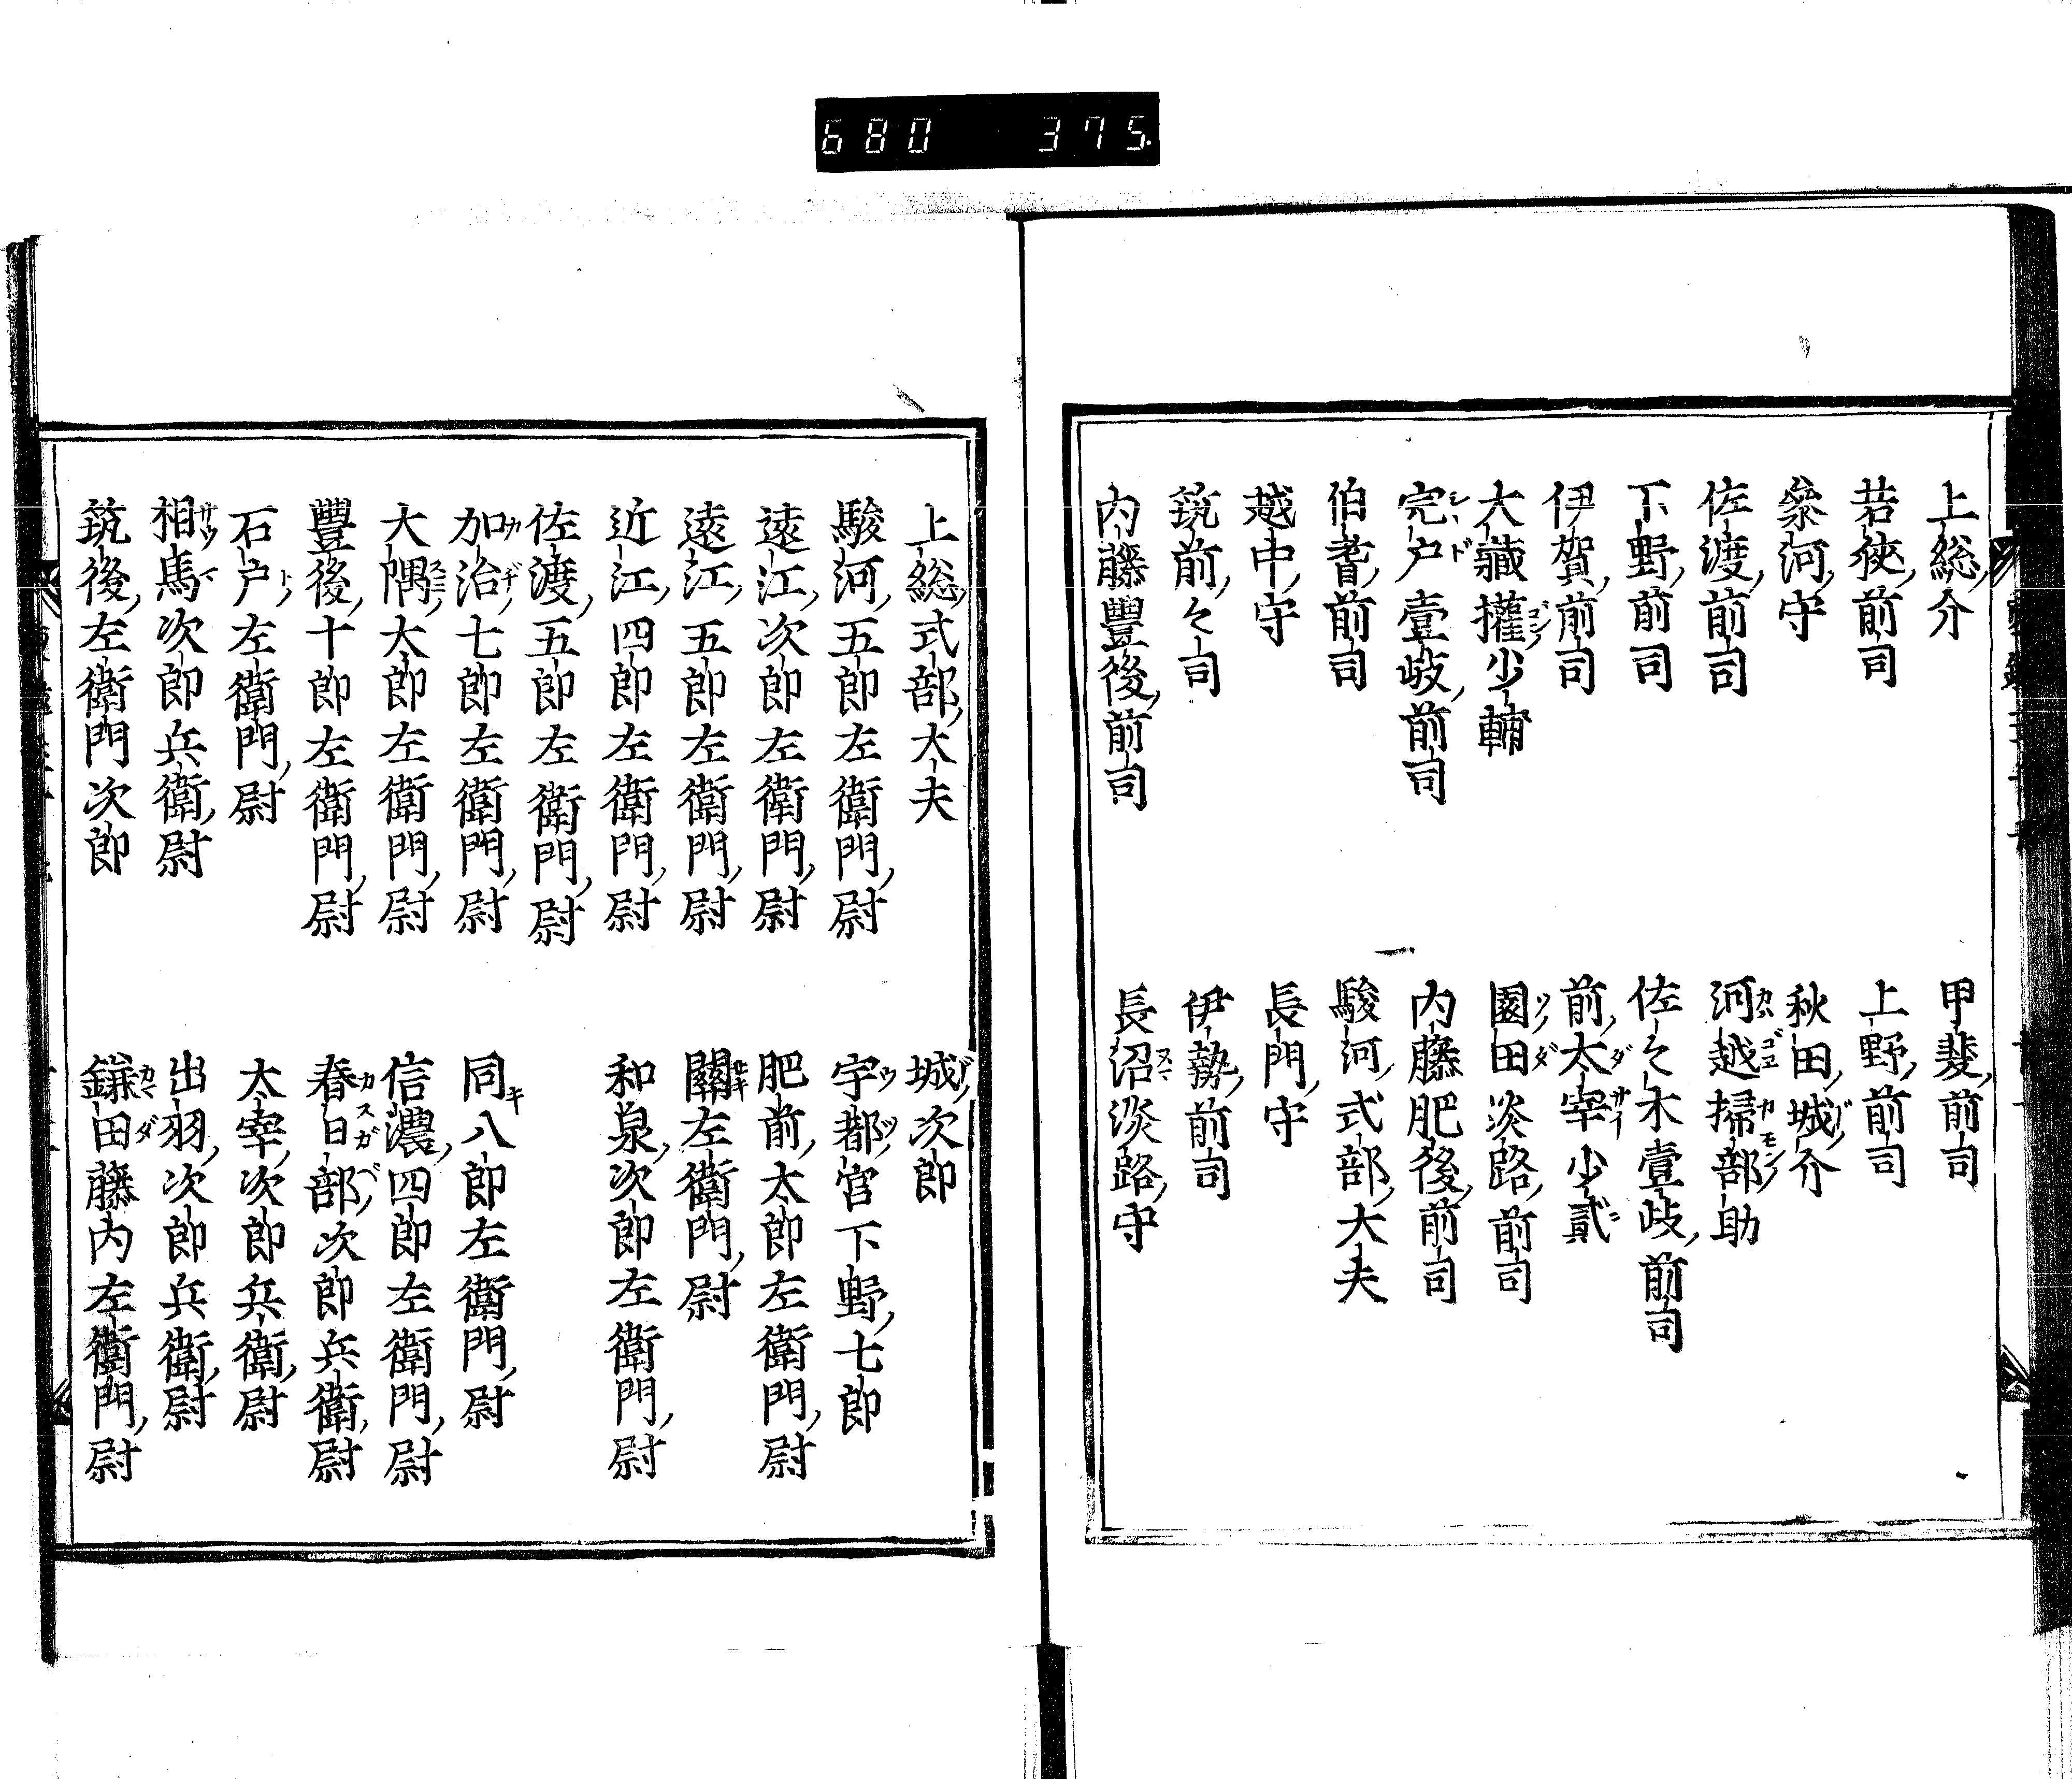 680 375.
上総介 甲斐前司
若狹前司 上野前司
参河守 秋田城介
佐渡前司 河越掃部助
下野前司 佐々木壹岐前司
伊賀前司 前太宰少貳
大藏權少輔 園田淡路前司
完戸壹岐前司 内藤肥後前司
伯耆前司 駿河式部大夫
越中守 長門守
筑前々司 伊勢前司
内藤豐後前司 長沼淡路守
上総式部大夫 城次郎
駿河五郎左衛門尉 宇都宮下野七郎
遠江次郎左衛門尉 肥前太郎左衛門尉
遠江五郎左衛門尉 關左衛門尉
近江四郎左衛門尉 和泉次郎左衛門尉
佐渡五郎左衛門尉
加治七郎左衛門尉 同八郎左衛門尉
大隅太郎左衛門尉 信濃四郎左衛門尉
豐後十郎左衛門尉 春日部次郎兵衛尉
石戸左衛門尉 太宰次郎兵衛尉
相馬次郎兵衛尉 出羽次郎兵衛尉
筑後左衛門次郎 鎌田藤内左衛門尉